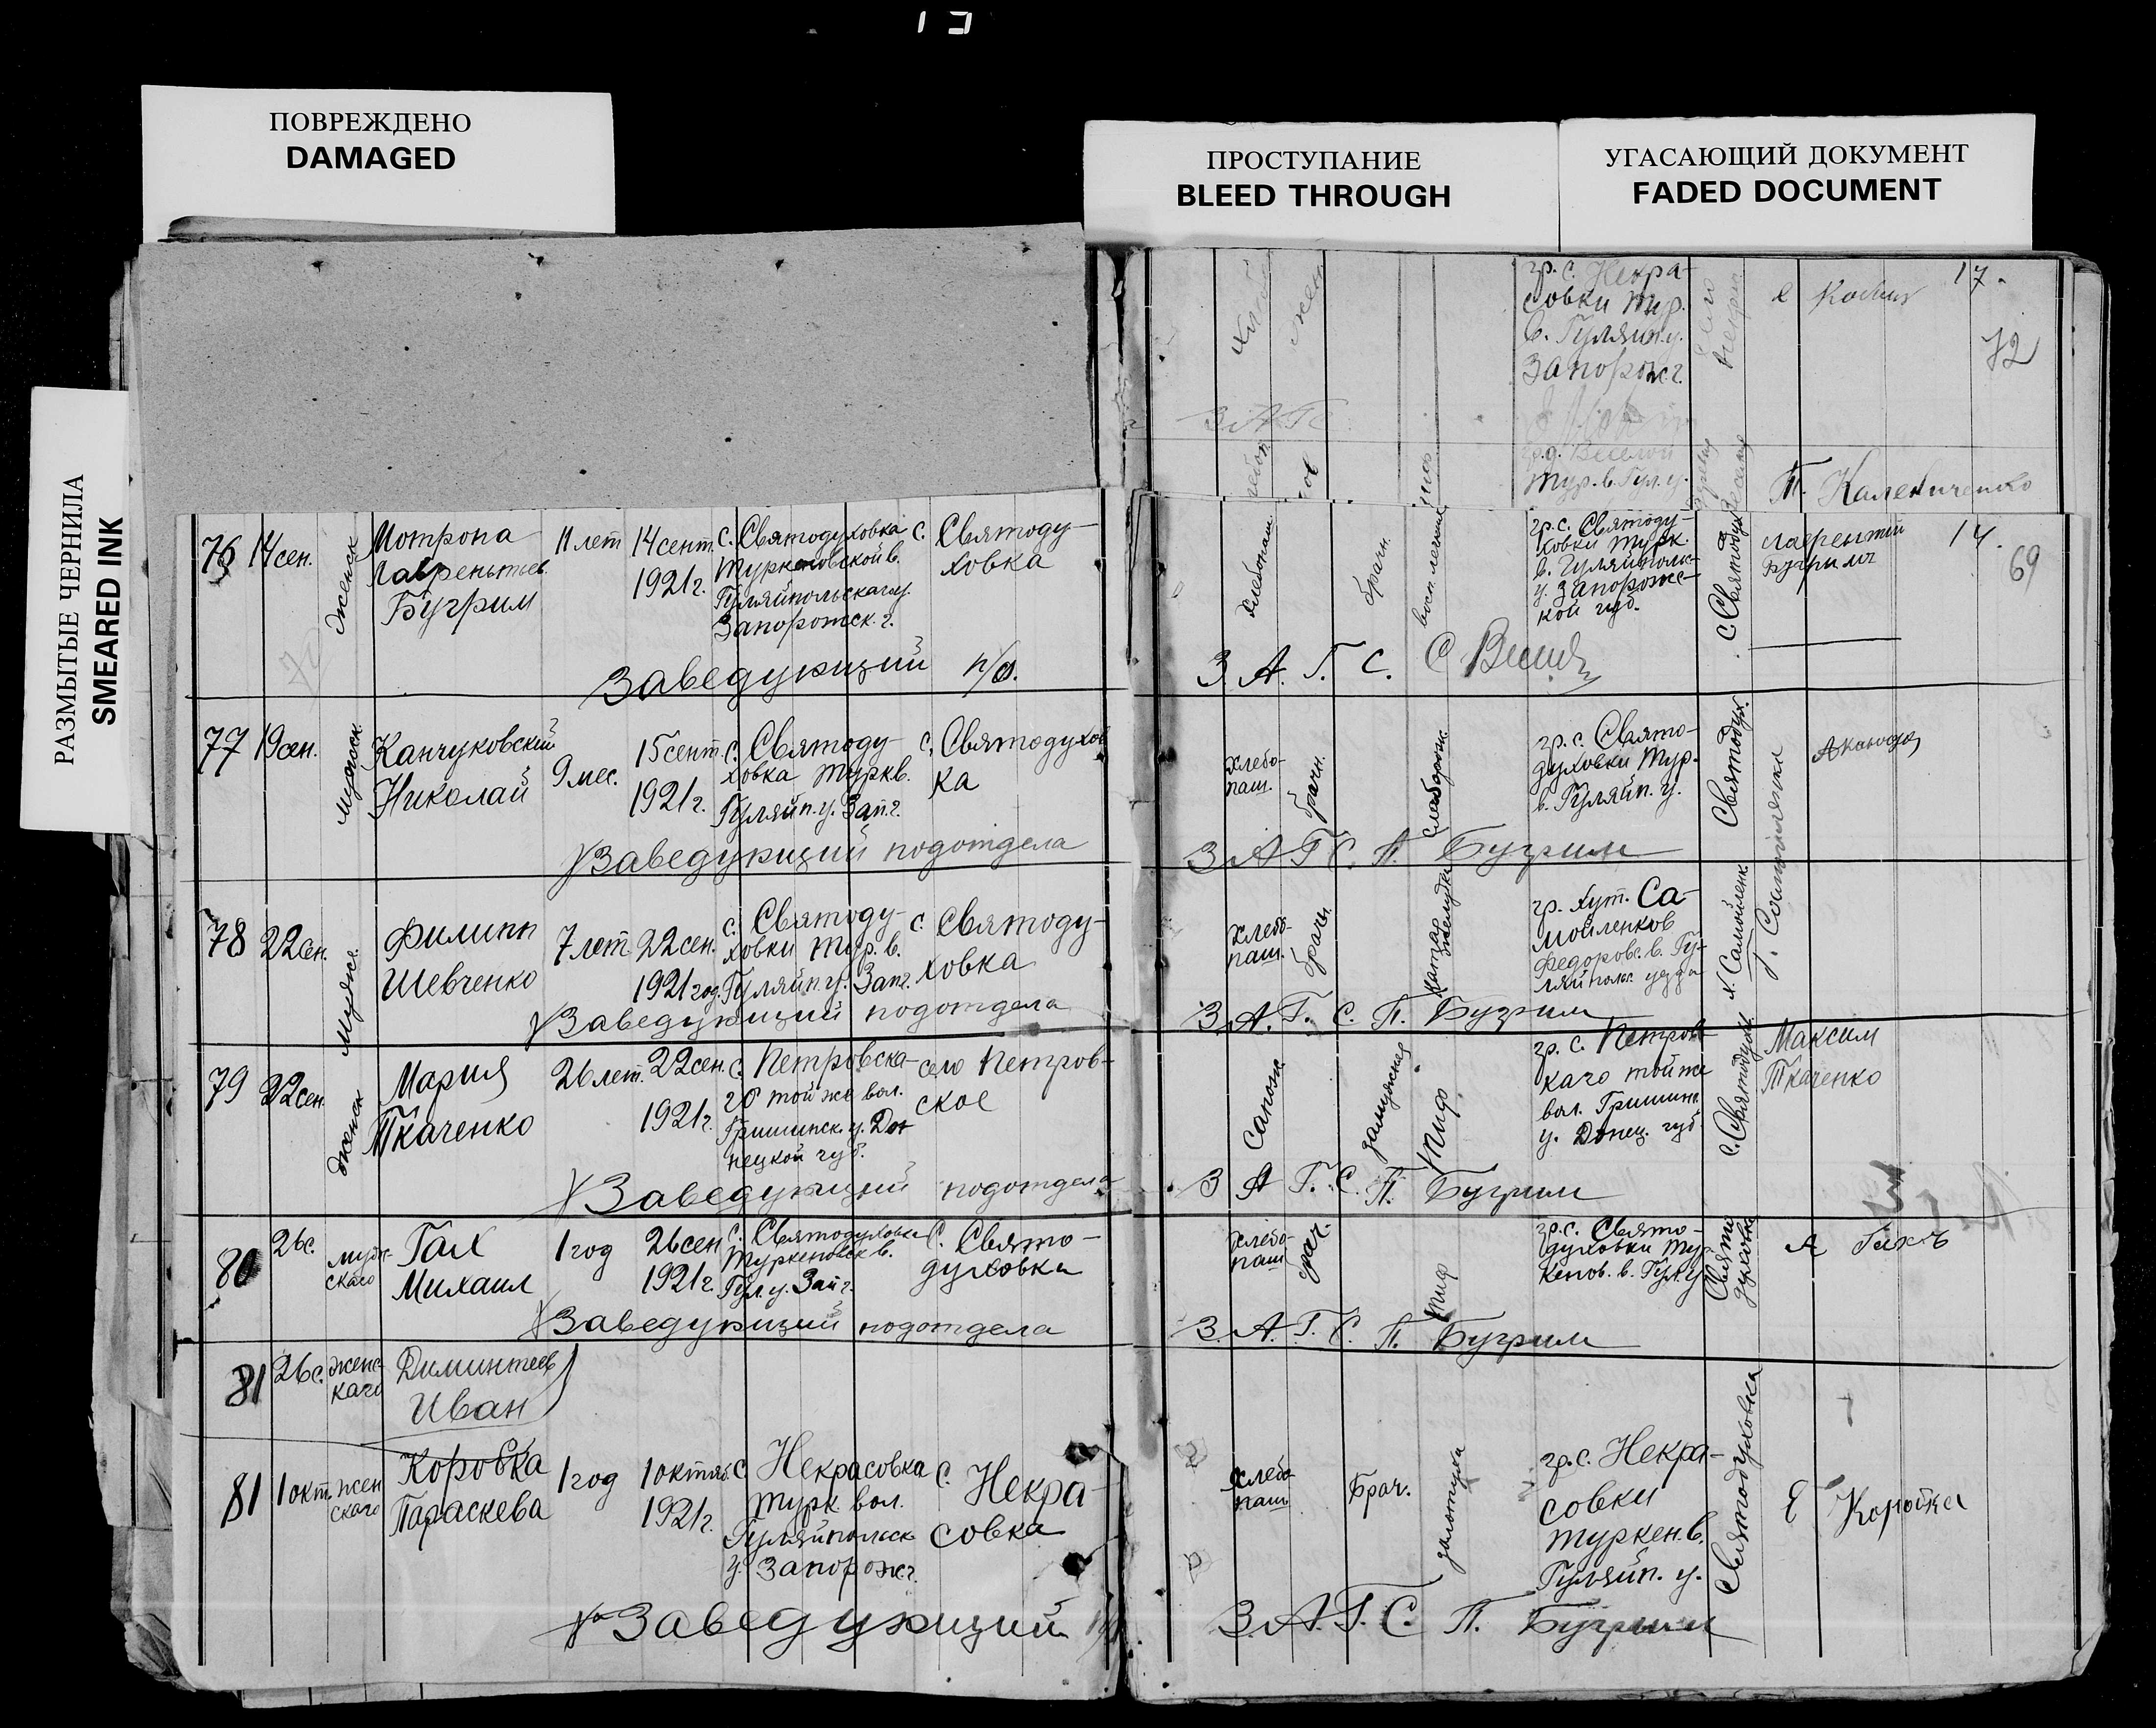 ПОВРЕЖДЕНО
DAMAGED
ПРОСТУПАНИЕ
BLEED THROUGH
УГАСАЮЩИЙ ДОКУМЕНТ
FADED DOCUMENT
РАЗМЫТЫЕ ЧЕРНИЛА
SMEARED INK
гр. с. Некра-
совки Тур.
в. Гуляйп. у.
Запорож. г.
17.
72
З А Г С
гр. д. Веселой
Тур. в. Гул. у.
Т. Калениченко
76 14 сен. женск
Мотрона
Лаврентьев.
Бугрим
11 лет
14 сент.
1921 г.
с. Святодуховка
Туркеновской в.
Гуляйпольскаго у.
Запорожск. г.
с. Святоду-
ховка
Заведующий п/о.
Хлебопаш.
брачн.
восп. легких
гр. с. Святоду-
ховки Турк.
в. Гуляйпольс
у. Запорожс-
кой губ.
с. Святодух
Лаврентий
Бугрим
17.
69
З. А. Г. С.
77 19 сен. мужск.
Канчуковский
Николай
9 мес.
15 сент.
1921 г.
с. Святоду-
ховка Турк в.
Гуляйп. у. Зап. г.
с. Святодухов
ка
Заведующий подотдела
Хлебо-
паш.
брачн.
гр. с. Свято-
духовки Тур.
в. Гуляйп. у.
Святодух.
З А Г С. П. Бугрим
78 22 сен. мужс.
Филипп
Шевченко
7 лет
22 сен.
1921 год.
с. Святоду-
ховки Тур. в.
Гуляйп. у. Зап. г.
с. Святоду-
ховка
Заведующий подотдела
Хлебо-
паш.
брачн.
катар
желудка
гр. хут. Са-
мойленков
Федоровс. в. Гу-
ляйпольс. уезда
х. Самойленк.
З. А. Г. С. П. Бугрим
79 22 сен. женск
Мария
Ткаченко
26 лет.
22 сен.
1921 г.
с. Петровска-
го той же вол.
Гришинск. у. Дон
нецкой губ.
село Петров-
ское
Заведующий подотдела
Сапожн.
замужняя
Тиф
гр. с. Петровс
каго той же
вол. Гришин.
у. Донец. губ
с. Святодухов.
Максим
Ткаченко
З А Г. С. П. Бугрим
80 26 с. муж-
скаго
Гал
Михаил
1 год
26 сен
1921 г.
с. Святодуховка
Туркеновск в.
Гул. у. Зап г.
с. Свято-
духовка
Заведующий подотдела
Хлебо-
паш
брач.
Тиф
гр. с. Свято-
духовки Тур
кенов. в. Гул. у
Свято
духовка
З. А. Г. С. П. Бугрим
81 26 с. женс-
каго
Диминтеев
Иван
81 1 окт. жен
скаго
Коровка
Параскева
1 год
1 октяб.
1921 г.
с. Некрасовка
Турк. вол.
Гуляйпольск
у. Запорож. г.
с. Некра-
совка
Заведующий
Хлебо-
паш
Брач.
золотуха
гр. с. Некра-
совки
Туркен. в.
Гуляйп. у.
Святодуховка
Е Коровка
З. А. Г. С. П. Бугрим